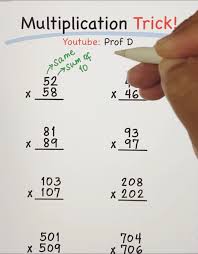 Multiplication Trick!
Youtube: Prof D
same
sum of
10
52
x 58
x 46
81
x 89
93
x 97
103
x 107
208
x 202
501
x 509
704
x 706